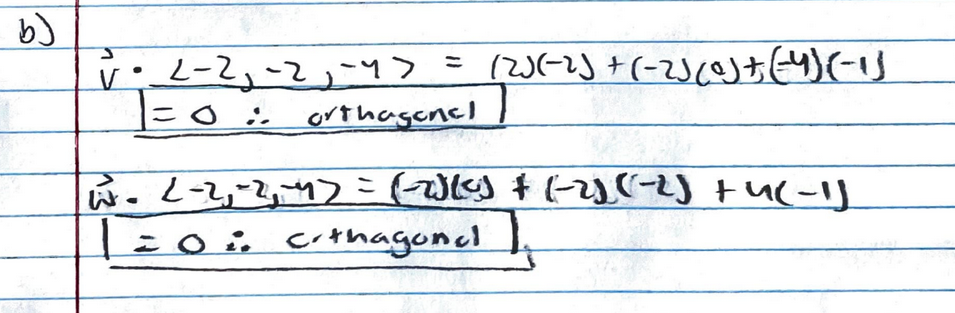 b)
v⃗ · <-2, -2, -4> = (2)(-2) + (-2)(0) + (-4)(-1)
= 0 ∴ orthagonal
w⃗ · <-2, -2, -4> = (-2)(0) + (-2)(-2) + 4(-1)
= 0 ∴ orthagonal